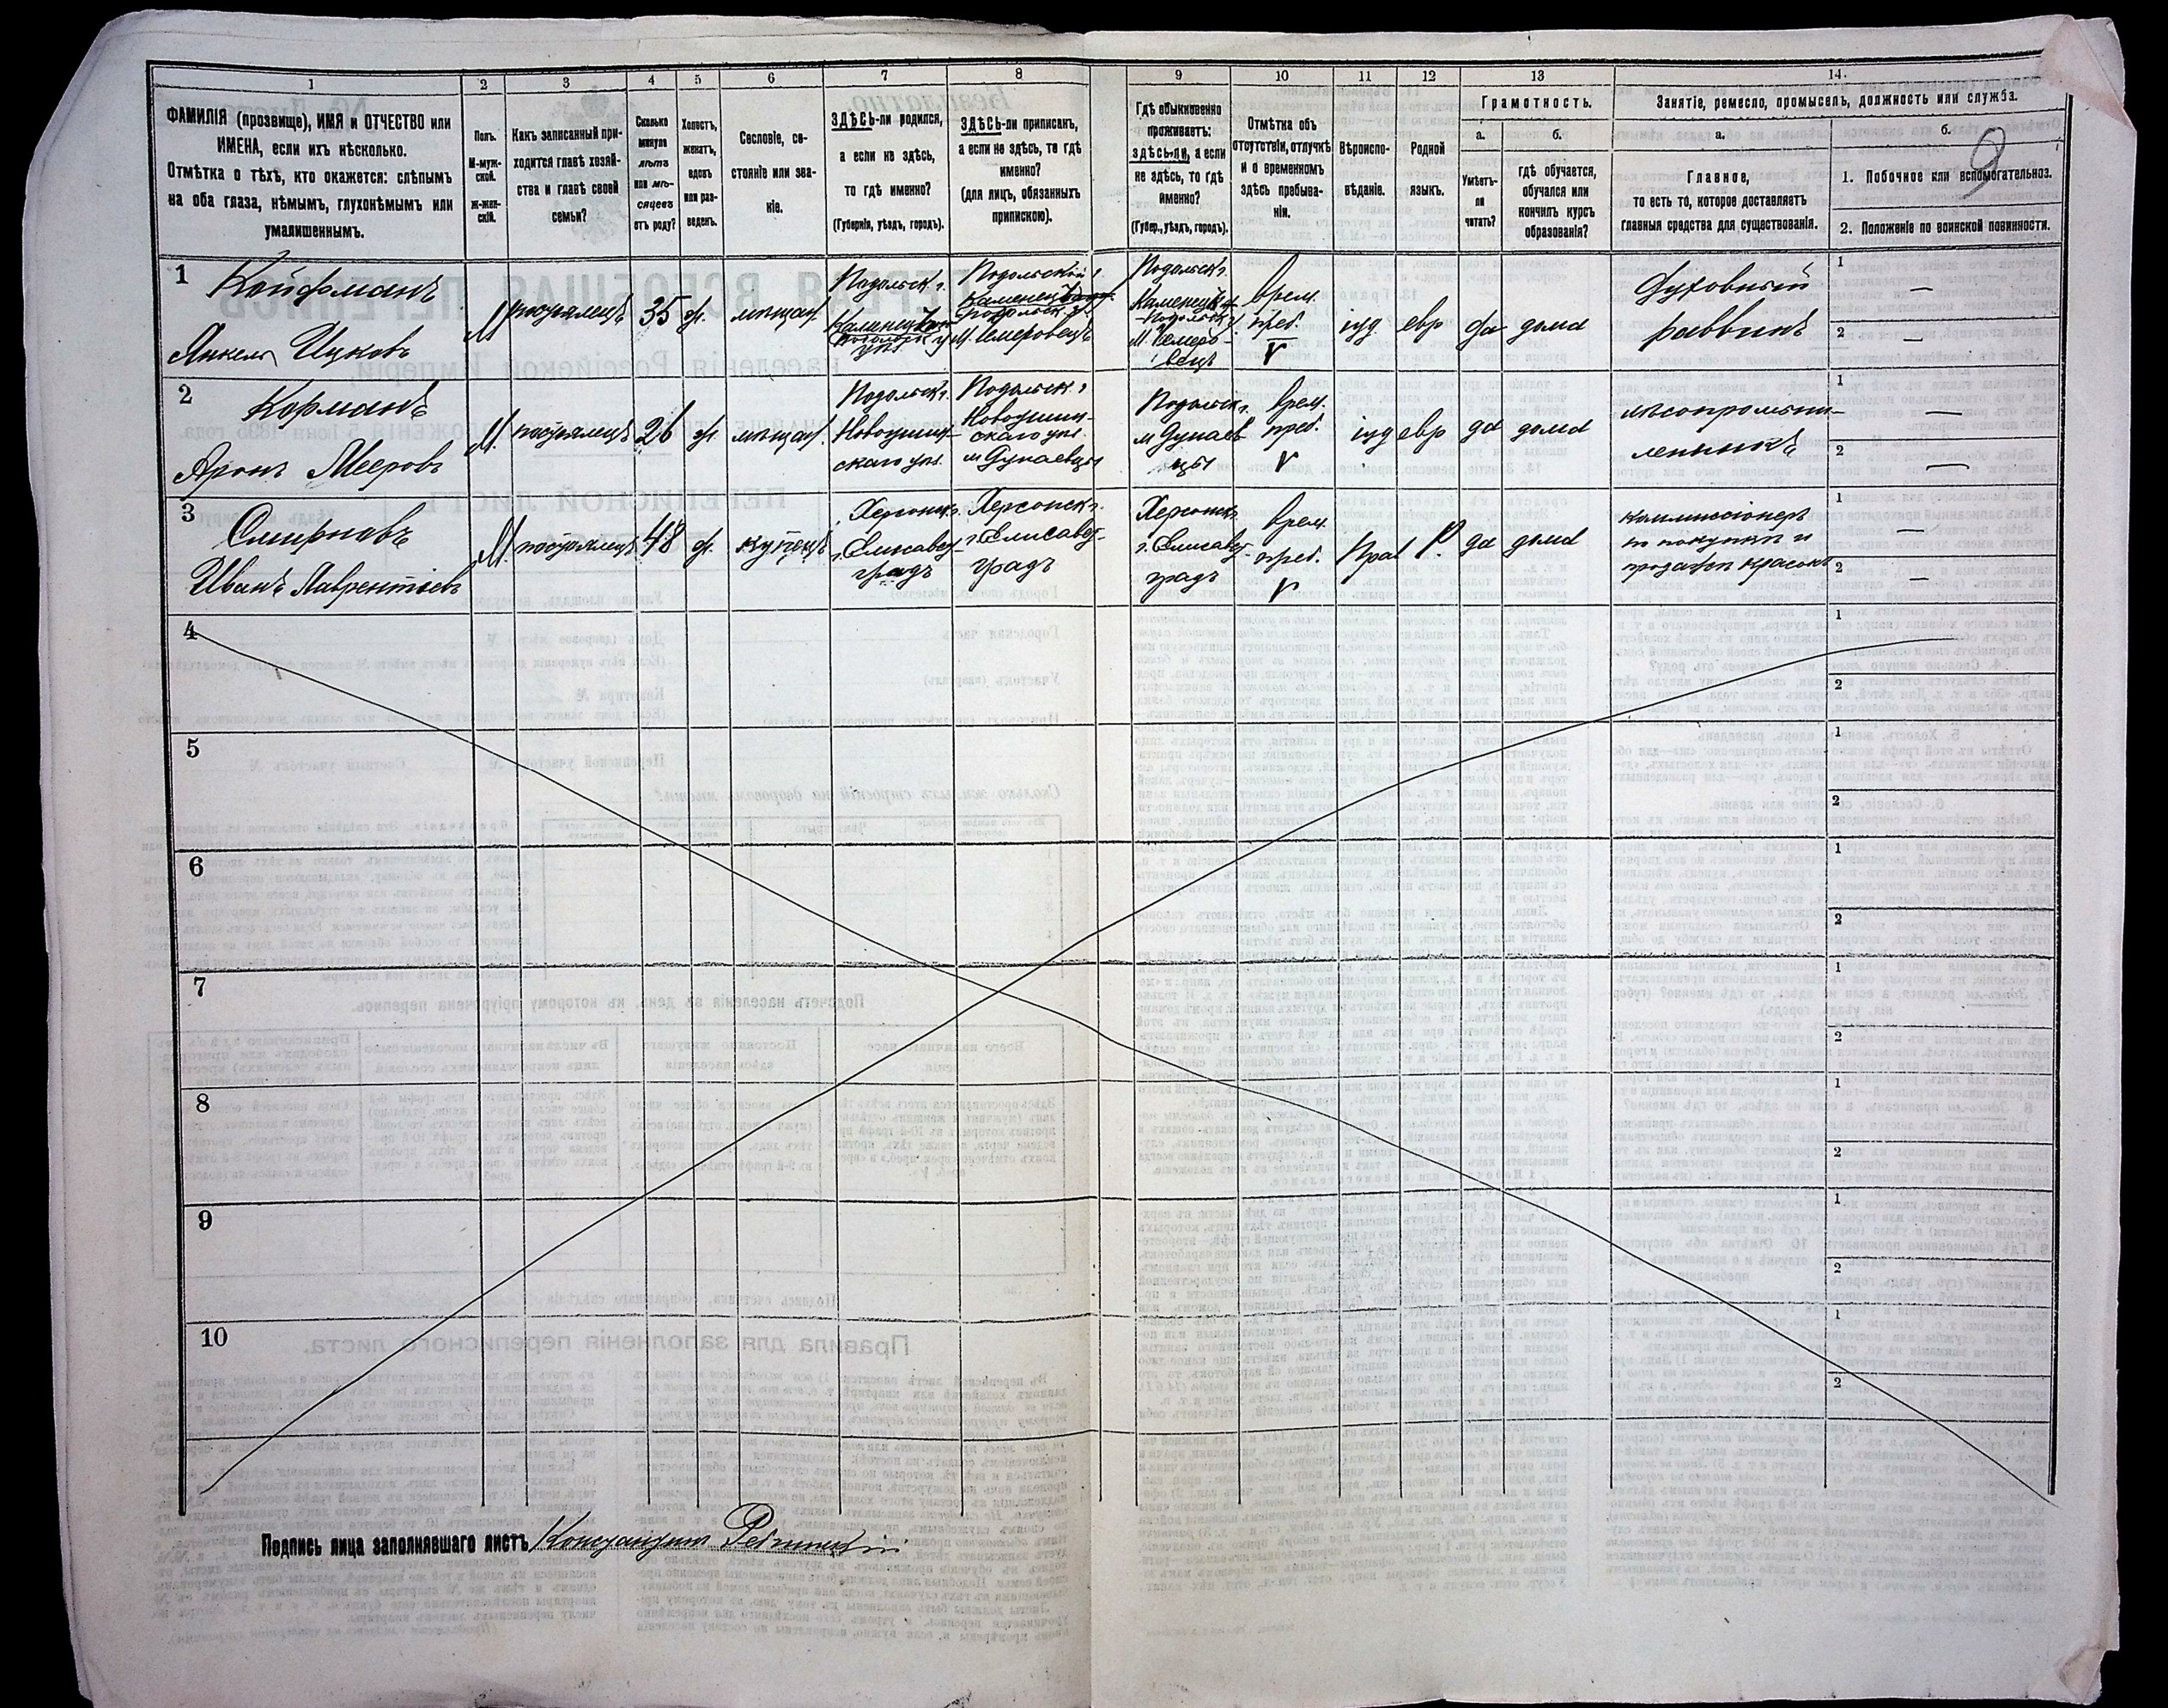 1 2 3 4 5 6 7 8 9 10 11 12 13 14.
ФАМИЛІЯ (прозвище), ИМЯ и ОТЧЕСТВО или
ИМЕНА, если ихъ нѣсколько.
Отмѣтка о тѣхъ, кто окажется: слѣпымъ
на оба глаза, нѣмымъ, глухонѣмымъ или
умалишеннымъ.
Полъ.
М-муж-
ской.
ж-жен-
скій.
Какъ записанный при-
ходится главѣ хозяй-
ства и главѣ своей
семьи?
Сколько
минуло
лѣтъ
или мѣ-
сяцевъ
отъ роду?
Холостъ,
женатъ,
вдовъ
или раз-
веденъ.
Сословіе, со-
стояніе или зва-
ніе.
ЗДѢСЬ-ли родился,
а если не здѣсь,
то гдѣ именно?
(Губернія, уѣздъ, городъ).
ЗДѢСЬ-ли приписанъ,
а если не здѣсь, то гдѣ
именно?
(для лицъ, обязанныхъ
припискою).
Гдѣ обыкновенно
проживаетъ:
здѣсь-ли, а если
не здѣсь, то гдѣ
именно?
(Губер., уѣздъ, городъ).
Отмѣтка объ
отсутствіи, отлучкѣ
и о временномъ
здѣсь пребыва-
ніи.
Вѣроиспо-
вѣданіе.
Родной
языкъ.
Грамотность.
а.
Умѣетъ-
ли
читать?
б.
гдѣ обучается,
обучался или
кончилъ курсъ
образованія?
Занятіе, ремесло, промыселъ, должность или служба.
а.
Главное,
то есть то, которое доставляетъ
главныя средства для существованія.
б.
9
1. Побочное или вспомогательное.
2. Положеніе по воинской повинности.
1
Койфманъ
Янкель Ицковъ
М
постоялецъ
35
ж.
мѣщан.
Подольск г.
Подольской г.
м. Чемеровецъ
Подольск г.
м. Чемеро-
вецъ
врем.
преб.
V
іуд
евр
да
дома
Духовный
раввинъ
1 —
2 —
2
Корманъ
Аронъ Мееровъ
М.
постоялецъ
26
ж.
мѣщан.
Подольск г.
Новоушиц-
скаго у.
Подольск г.
Новоушиц-
скаго у.
м Дунаевцы
Подольск г.
м Дунаев-
цы
врем.
преб.
V
іуд
евр
да
дома
лѣсопромыш-
ленникъ
1 —
2 —
3
Смирновъ
Иванъ Лаврентіевъ
М.
постоялецъ
48
ж.
купецъ
Херсонск г.
г. Елисавет-
градъ
Херсонск г.
г. Елисавет-
градъ
Херсонск г.
г. Елисавет-
градъ
врем.
преб.
V
Прав
Р.
да
дома
коммиссіонеръ
по покупкѣ и
продажѣ красокъ
1 —
2 —
4
1
2
5
1
2
6
1
2
7
1
2
8
1
2
9
1
2
10
1
2
Подпись лица заполнявшаго листъ Константин